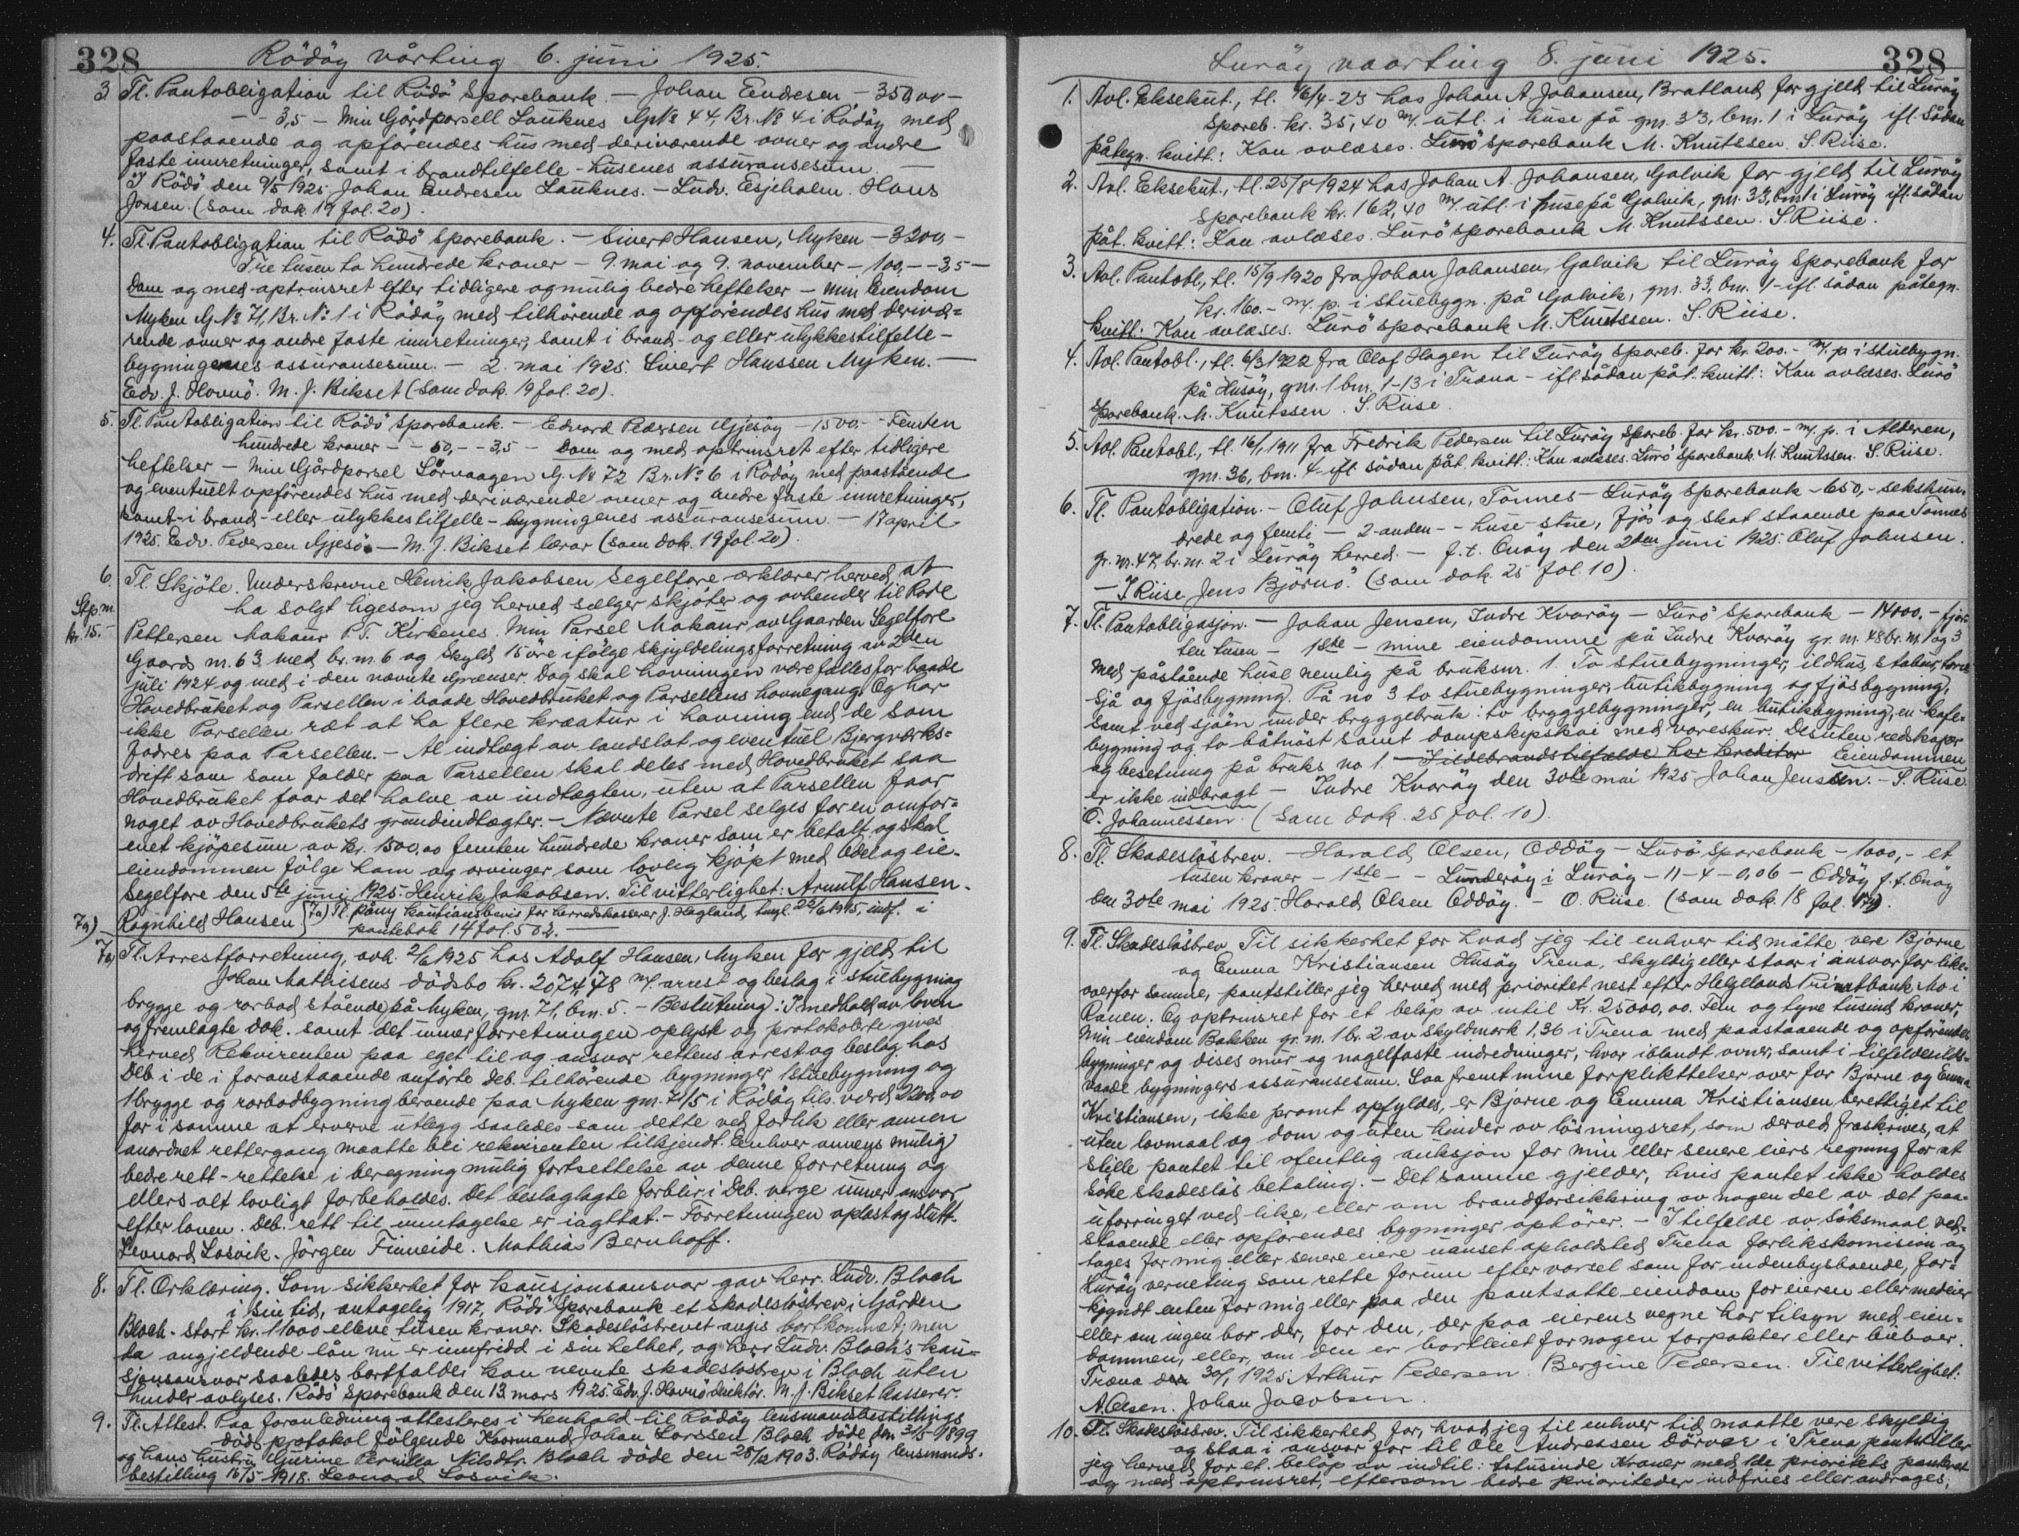 328
Rödöy vårting 6. juni 1925.
3. Tl. Pantobligation til Rödö Sparebank — Johan Endresen — 350,00 —
— 3,5 — Min Gårdparsell Lauknes G.№ 44, Br.№ 4 i Rödöy med
paastaaende og opförendes hus med derværende ovner og andre
faste innretninger, samt i brandtilfelle - husenes assuransesum. —
I Rödö den 9/5 1925. Johan Endresen Lauknes. — Ludv. Esjeholm. Hans
Jonsen. (Sam dok. 19 fol. 20).
4. Tl. Pantobligation til Rödö Sparebank. — Sivert Hansen, Myken — 3200,—
Tre tusen to hundrede kroner — 9. mai og 9. november — 100,— — 3,5 —
Dom og med optrinsret efter tidligere og mulig bedre heftelser — min Eiendom
Myken G.№ 71, Br.№ 1 i Rödöy med tilhörende og opförendes hus med deriv=
rende ovner og andre faste innretninger, samt i brand- og eller ulykkestilfelle -
bygningenes assuransesum. — 2. mai 1925. Sivert Hanssen Myken. —
Edv. J. Hovnö. M. J. Bikset (Sam dok. 19 fol. 20).
5. Tl. Pantobligation til Rödö Sparebank. — Edvard Pedersen Gjesöy — 1500,- - Femten
hundrede kroner — — 50,— — 3,5 — Dom og med optrinsret efter tidligere
heftelser — Min Gårdparsel Sörvaagen G.№ 72 Br.№ 6 i Rödöy med paastående
og eventuelt opförendes hus med derværende ovner og andre faste innretninger,
samt i brand- eller ulykkestilfelle - bygningenes assuransesum — 17 april
1925. Edv. Pedersen Gjesö. — M. J. Bikset lærer (Sam dok. 19 fol. 20).
6. Tl. Skjöte. Underskrevne Henrik Jakobsen Segelfore erklærer herved at
Stp. m.
kr. 15.-
ha solgt ligesom jeg herved sælger skjöter og avhender til Kore
Pettersen Makaur P.T. Kirkenes. Min Parsel Makaur av Gaarden Segelfore
Gaards n. 63 med br. n. 6 og Skyld 15 öre ifölge skjyldelingsforretning av 2den
juli 1924 og med i den nævnte Grænser. Dog skal havningen være fælles for baade
Hovedbruket og Parsellen i baade Hovedbruket og Parsellens havnegang. Og har
ikke Parsellen ræt at ha flere kræatur i havning end de som
fodres paa Parsellen. — Al indtægt av landslot og eventuel Bjergværks=
drift som som falder paa Parsellen skal deles med Hovedbruket saa
Hovedbruket faar det halve av indtægten, uten at Parsellen faar
noget av Hovedbrukets grundindtægter. — Nævnte Parsel selges for en omfor=
enet kjöpesum av kr. 1500,00 femten hundrede kroner som er betalt og skal
eiendommen fölge ham og arvinger som lovlig kjöpt med Odel og eie.
Segelfore den 5te juni 1925. Henrik Jakobsen. Til vitterlighet: Arnulf Hansen.
Ragnhild Hansen
7a) Tl. påny kautionsbevis for herredskasserer J. Hagland, tngl. 22/6 1915, indf. i
pantebok 14 fol. 502. —
7a) Tl. Arrestforretning, avh. 2/6 1925 hos Adolf Hansen, Myken for gjeld til
Johan Mathisens dödsbo kr. 2074,78 m/. arrest og beslag i stuebygning
brygge og rorbod stående på Myken, gm. 71, bm. 5. — Beslutning: I medhold av loven
og fremlagte dok. samt det under forretningen oplyst og protokolerte gives
herved Rekvirenten paa eget til og ansvar rettens arrest og beslag hos
Deb. i de i foranstaaende anförte Deb. tilhörende bygninger 1stuebygning og
1 brygge og rorbodbygning beroende paa Myken gm. 71/5 i Rödöy tils. værd 2200,00
for i samme at erverve utlegg saaledes som dette ved forlik eller annen
anordnet rettergang maatte bli rekvirenten tilkjendt. Enhver annens mulig
bedre rett - rettelse i beregning mulig fortsettelse av denne forretning og
ellers alt lovligt forbeholdes. Det beslaglagte forblir i Deb. verge under ansvar
efter loven. Deb. rett til unntagelse er iagttat. — Forretningen oplæst og slutt.
Leonard Losvik. Jörgen Finneide. Mathias Bernhoff.
8. Tl. Erklæring. Som sikkerhet for kausjonsansvar gav herr. Ludv. Bloch
i sin tid, antagelig 1917, Rödö Sparebank et skadeslösbrev i Gjården
Bloch - stort kr. 11000 elleve tusen kroner. Skadeslösbrevet angis bortkommet, men
da angjeldende lån nu er innfridd i sin helhet, og herr Ludv. Bloch's kau=
sjonsansvar saaledes bortfalder kan nevnte skadeslösbrev i Bloch uten
hinder avlyses. Rödö Sparebank den 13 mars 1925. Edv. J. Hovnö direktör. M. J. Bikset kasserer.
9. Tl. Attest. Paa foranledning attesteres i henhold til Rödöy lensmandsbestillings
döds protokol fölgende Kaarmand Johan Larssen Bloch döde den 31/5 1899
og hans hustru Gjurine Pernilla Nilsdtr. Bloch döde den 28/12 1903. Rödöy lensmands-
bestilling 16/5 1918. Leonard Losvik.
Luröy vaarting 8. juni 1925.
328
1. Avl. Eksekut., tl. 16/4-23 hos Johan A. Johansen, Bratland for gjeld til Luröy
Spareb. kr. 35,40 m/. utl. i huse på gm. 33, bm. 1 i Luröy ifl. sådan
påtegn. kvitt: Kan avlæses. Lurö sparebank M. Knutssen. S. Riise.
2. Avl. Eksekut., tl. 25/8 1924 hos Johan A. Johansen, Galvik for gjeld til Luröy
Sparebank kr. 162,40 m/. utl. i huse på Galvik, gm. 33, bm. 1 i Luröy ifl. sådan
påt. kvitt: Kan avlæses. Lurö sparebank M. Knutssen. S. Riise.
3. Avl. Pantobl., tl. 15/9 1920 fra Johan Johansen, Galvik til Luröy Sparebank for
kr. 160.- m/. p. i stuebygn. på Galvik, gm. 33, bm. 1 - ifl. sådan påtegn.
kvitt: Kan avlæses. Lurö sparebank M. Knutssen. S. Riise.
4. Avl. Pantobl., tl. 6/3 1922 fra Olaf Hagen til Luröy spareb. for kr. 200.- m/. p. i stuebygn.
på Husöy, gm. 1 bm. 1-13 i Træna - ifl. sådan påt. kvitt: Kan avlæses. Lurö
sparebank. M. Knutssen. S. Riise.
5. Avl. Pantobl., tl. 16/1 1911 fra Fredrik Pedersen til Luröy Spareb. for kr. 500.- m/. p. i Alderen,
gm. 36, bm. 4 - ifl. sådan påt. kvitt: Kan avlæses. Lurö Sparebank. M. Knutssen. S. Riise.
6. Tl. Pantobligation. — Oluf Johnsen, Tonnes — Luröy Sparebank - 650,- sekshun
drede og femti — 2-anden - - huse - stue, fjös og skot staaende paa Tonnes
gr. n. 47, br. n. 2 i Luröy herred. — f.t. Onöy den 2den juni 1925. Oluf Johnsen.
— S. Riise Jens Björnö. (Sam dok 25 fol. 10).
7. Tl. Pantobligasjon. — Johan Jensen, Indre Kvaröy — Lurö Sparebank — 14000.- fjor=
ten tusen — 1ste — mine eiendomme på Indre Kvaröy gr. n. 48 br. n. 1 og 3
med påstående huse nemlig på bruksnr. 1. To stuebygninger, ildhus, stabur,
sjå og fjösbygning. På no 3 to stuebygninger, butikbygning og fjösbygning,
samt ved sjöen under bryggebruk: to bryggebygninger, en butikbygning, en kafe-
bygning og to båtnöst samt dampskipskai med vareskur. Desuten redskaper
og besetning på bruks no 1. — I ildebrandstilfælde har kreditor Eiendommen
er ikke indbragt — Indre Kvaröy den 30te mai 1925. Johan Jenssen. — S. Riise.
O. Johannessen. (Sam dok. 25 fol. 10).
8. Tl. Skadeslösbrev. — Harald Olsen, Oddöy — Lurö Sparebank — 1000,- et
tusen kroner — 1ste — — Lunderöy i Luröy — 11 - 4 - 0,06 — Oddöy f.t. Onöy
den 30te mai 1925. Harald Olsen Oddöy. — O. Riise. (Sam dok. 18 fol. 179).
9. Tl. Skadeslösbrev. Til sikkerhet for hvad jeg til enhver tid måtte vere Bjarne
og Emma Kristiansen Husöy Trena, skyldig eller staar i ansvar for like-
overfor samme, pantstiller jeg herved med prioritet nest efter Helgeland Privatbank Mo i
Ranen. Og optrinsret for et belöp av intil Kr. 25000,00. Fem og tyve tusind kroner,
Min eiendom Bakken gr. n. 1 br. 2 av skyldmark 1,36 i Trena med paastaaende og opförendes
bygninger og dises mur og nagelfaste indredninger, hvor iblandt ovner, samt i tilfelde ilds-
vaade bygningers assuransesum. Saa fremt mine forpliktelser over for Bjarne og Emma
Kristiansen, ikke promt opfyldes, er Bjarne og Emma Kristiansen berettiget til
uten lovmaal og dom og uten hinder av lösningsret, som derved fraskrives, at
stille pantet til ofentlig auksjon for min eller senere eiers regning for at
söke skadeslös betaling. — Det samme gjelder, hvis pantet ikke holdes
uforringet ved like, eller om brandforsikkring av nogen del av det paa=
staaende eller opförendes bygninger ophörer. — I tilfelde av söksmaal ved-
tages for mig eller senere eiere uanset opholdsted Trena forlikskomision og
Luröy verneting som rette forum efter varsel som for indenbysboende, for=
kyndt enten for mig eller paa den pantsatte eiendom for eieren eller medeier
eller om ingen bor der, for den, der paa eierens vegne har tilsyn med eien=
dommen, eller, om den er bortleiet for nogen forpakter eller bruker.
Træna den 30/1 1925. Arthur Pedersen. Bergine Pedersen. Til vitterlighet:
A. Olsen. Johan Jacobsen.
10. Tl. Skadeslösbrev. Til sikkerhed for, hvad jeg til enhver tid maatte vere skyldig
og staa i ansvar for til Ole Andreassen Dörvær i Trena pantstiller
jeg herved for et belöp av indtil: totusinde Kroner med 1de prioritets panteret
og med optrinsret, eftersom bedre prioriteder indfries eller avdrages,